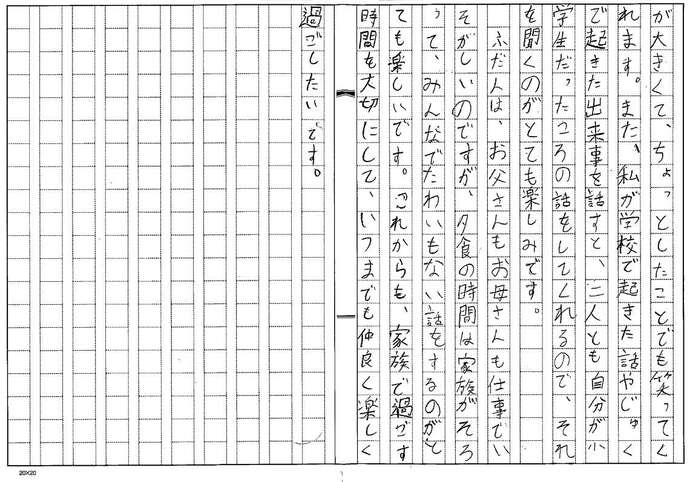 が大きくて、ちょっとしたことでも笑ってく
れます。また、私が学校で起きた話やじゅく
で起きた出来事を話すと、二人とも自分が小
学生だったころの話をしてくれるので、それ
を聞くのがとても楽しみです。
ふだんは、お父さんもお母さんも仕事でい
そがしいのですが、夕食の時間は家族がそろ
って、みんなでたわいもない話をするのがと
ても楽しいです。これからも、家族で過ごす
時間を大切にして、いつまでも仲良く楽しく
過ごしたいです。
20×20